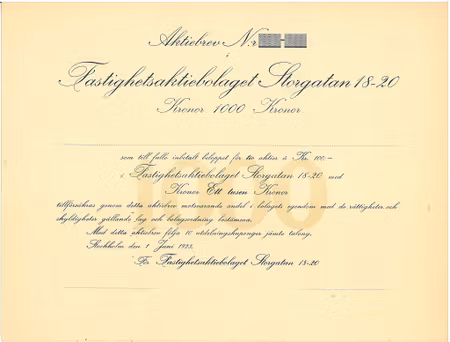 Aktiebrev Nr
i
Fastighetsaktiebolaget Storgatan 18-20
Kronor 1000 Kronor
som till fullo inbetalt beloppet för tio aktier à Kr. 100-
i Fastighetsaktiebolaget Storgatan 18-20 med
Kronor Ett tusen Kronor
tillförsäkras genom detta aktiebrev motsvarande andel i bolagets egendom med de rättigheter och
skyldigheter gällande lag och bolagsordning bestämma.
Med detta aktiebrev följa 10 utdelningskuponger jämte talong.
Stockholm den 1 Juni 1933.
För Fastighetsaktiebolaget Storgatan 18-20